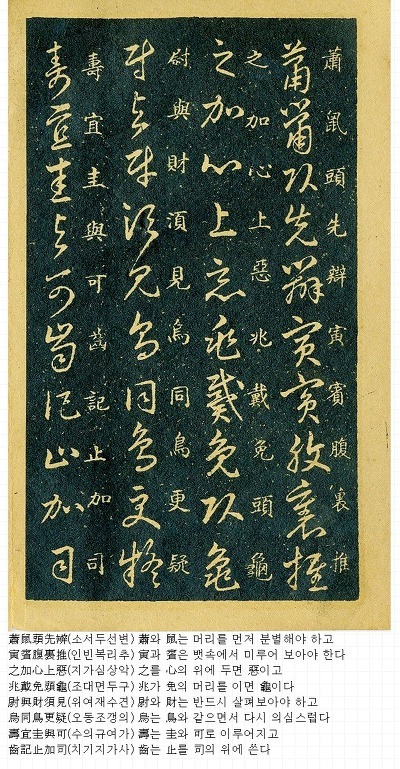 蕭鼠頭先辯寅賓腹裏推
蕭鼠頭先辯寅賓腹裏推
之加心上惡兆戴免頭龜
之加心上惡兆戴免頭龜
尉與財湏見烏同鳥更疑
尉與財須見烏同鳥更疑
壽宜圭與可齒記止加司
壽宜圭與可齒記止加司
蕭鼠頭先辨(소서두선변) 蕭와 鼠는 머리를 먼저 분별해야 하고
寅賓腹裏推(인빈복리추) 寅과 賓은 뱃속에서 미루어 보아야 한다
之加心上惡(지가심상악) 之를 心의 위에 두면 惡이고
兆戴免頭龜(조대면두구) 兆가 免의 머리를 이면 龜이다
尉興財須見(위여재수견) 尉와 財는 반드시 살펴보아야 하고
烏同鳥更疑(오동조갱의) 烏는 鳥와 같으면서 다시 의심스럽다
壽宜圭興可(수의규여가) 壽는 圭와 可로 이루어지고
齒記止加司(치기지가사) 齒는 止를 司의 위에 쓴다